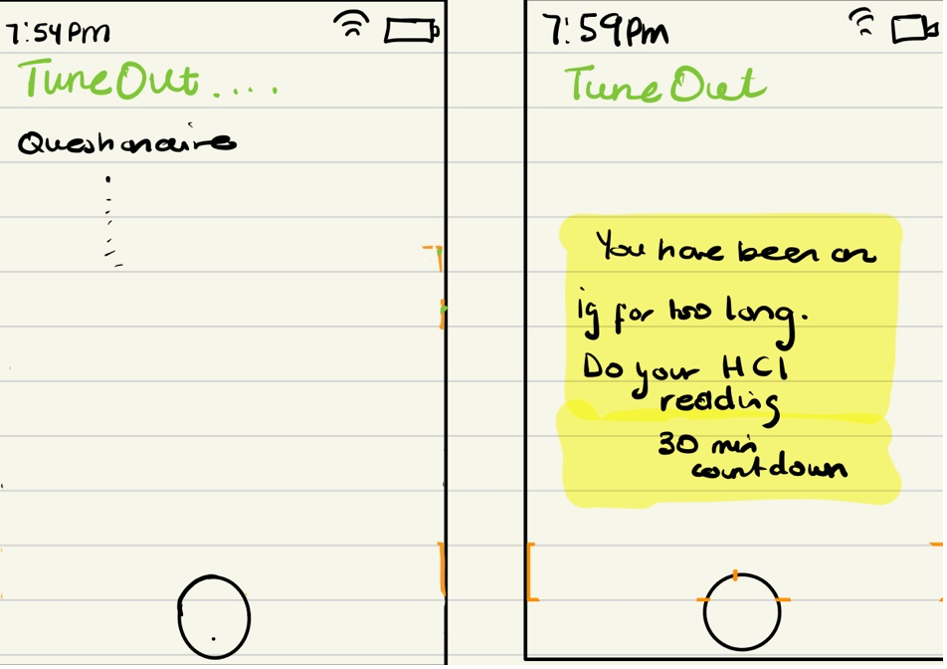 7:54pm
TuneOut....
Questionaire
7:59pm
TuneOut
You have been on
ig for too long.
Do your HCI
reading
30 min
countdown